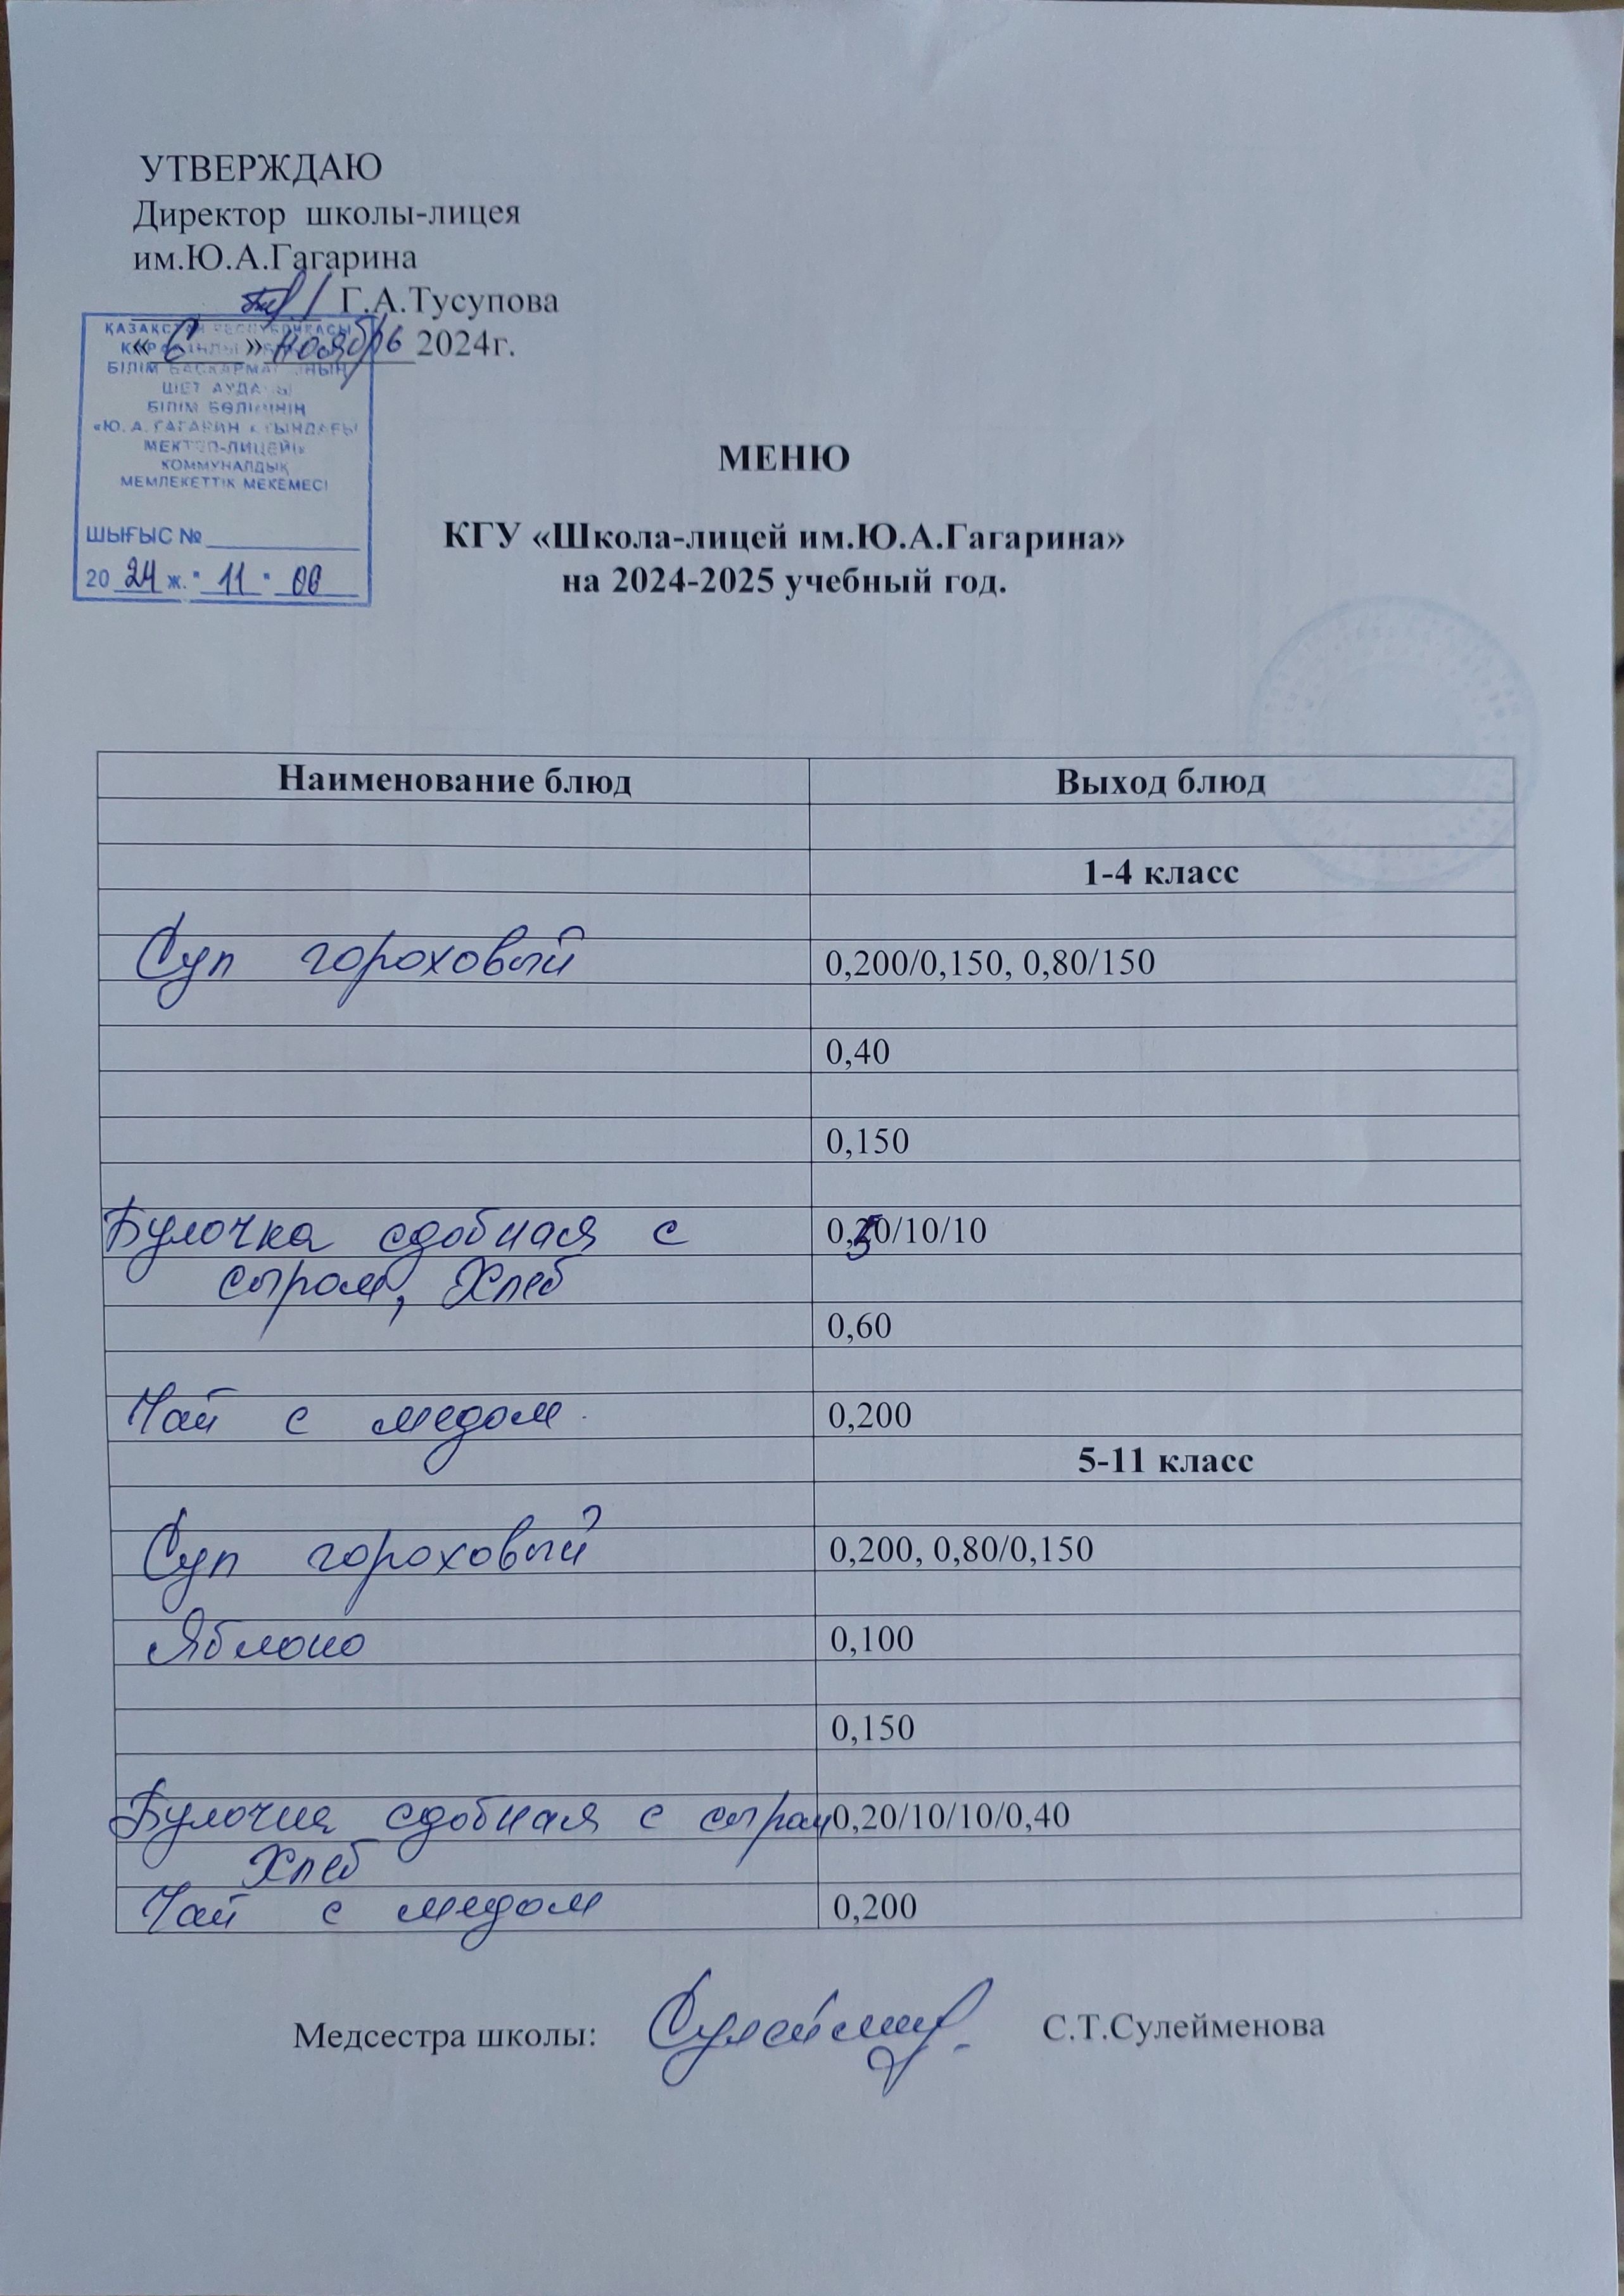 УТВЕРЖДАЮ
Директор школы-лицея
им.Ю.А.Гагарина
Г.А.Тусупова
« 6 » ноябрь 2024г.
ҚАЗАҚСТАН РЕСПУБЛИКАСЫ
ҚАРАҒАНДЫ
БІЛІМ БАСҚАРМАСЫНЫҢ
ШЕТ АУДАНЫ
БІЛІМ БӨЛІМІНІҢ
«Ю. А. ГАГАРИН АТЫНДАҒЫ
МЕКТЕП-ЛИЦЕЙІ»
КОММУНАЛДЫҚ
МЕМЛЕКЕТТІК МЕКЕМЕСІ
ШЫҒЫС №
20 24 ж. " 11 "
МЕНЮ
КГУ «Школа-лицей им.Ю.А.Гагарина»
на 2024-2025 учебный год.
Наименование блюд Выход блюд
1-4 класс
Суп гороховый 0,200/0,150, 0,80/150
0,40
0,150
Булочка сдобная с 0,50/10/10
сыром, Хлеб
0,60
Чай с медом 0,200
5-11 класс
Суп гороховый 0,200, 0,80/0,150
Яблоко 0,100
0,150
Булочка сдобная с сыром 0,20/10/10/0,40
Хлеб
Чай с медом 0,200
Медсестра школы: С.Т.Сулейменова